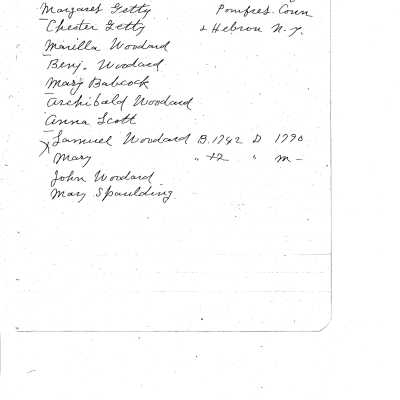 Margaret Getty Pomfret. Conn
Chester Getty & Hebron N.Y.
Marilla Woodard
Benj. Woodard
Mary Babcock
Archibald Woodard
Anna Scott
Samuel Woodard B. 1742 D 1790
Mary " 42 " m -
John Woodard
Mary Spaulding